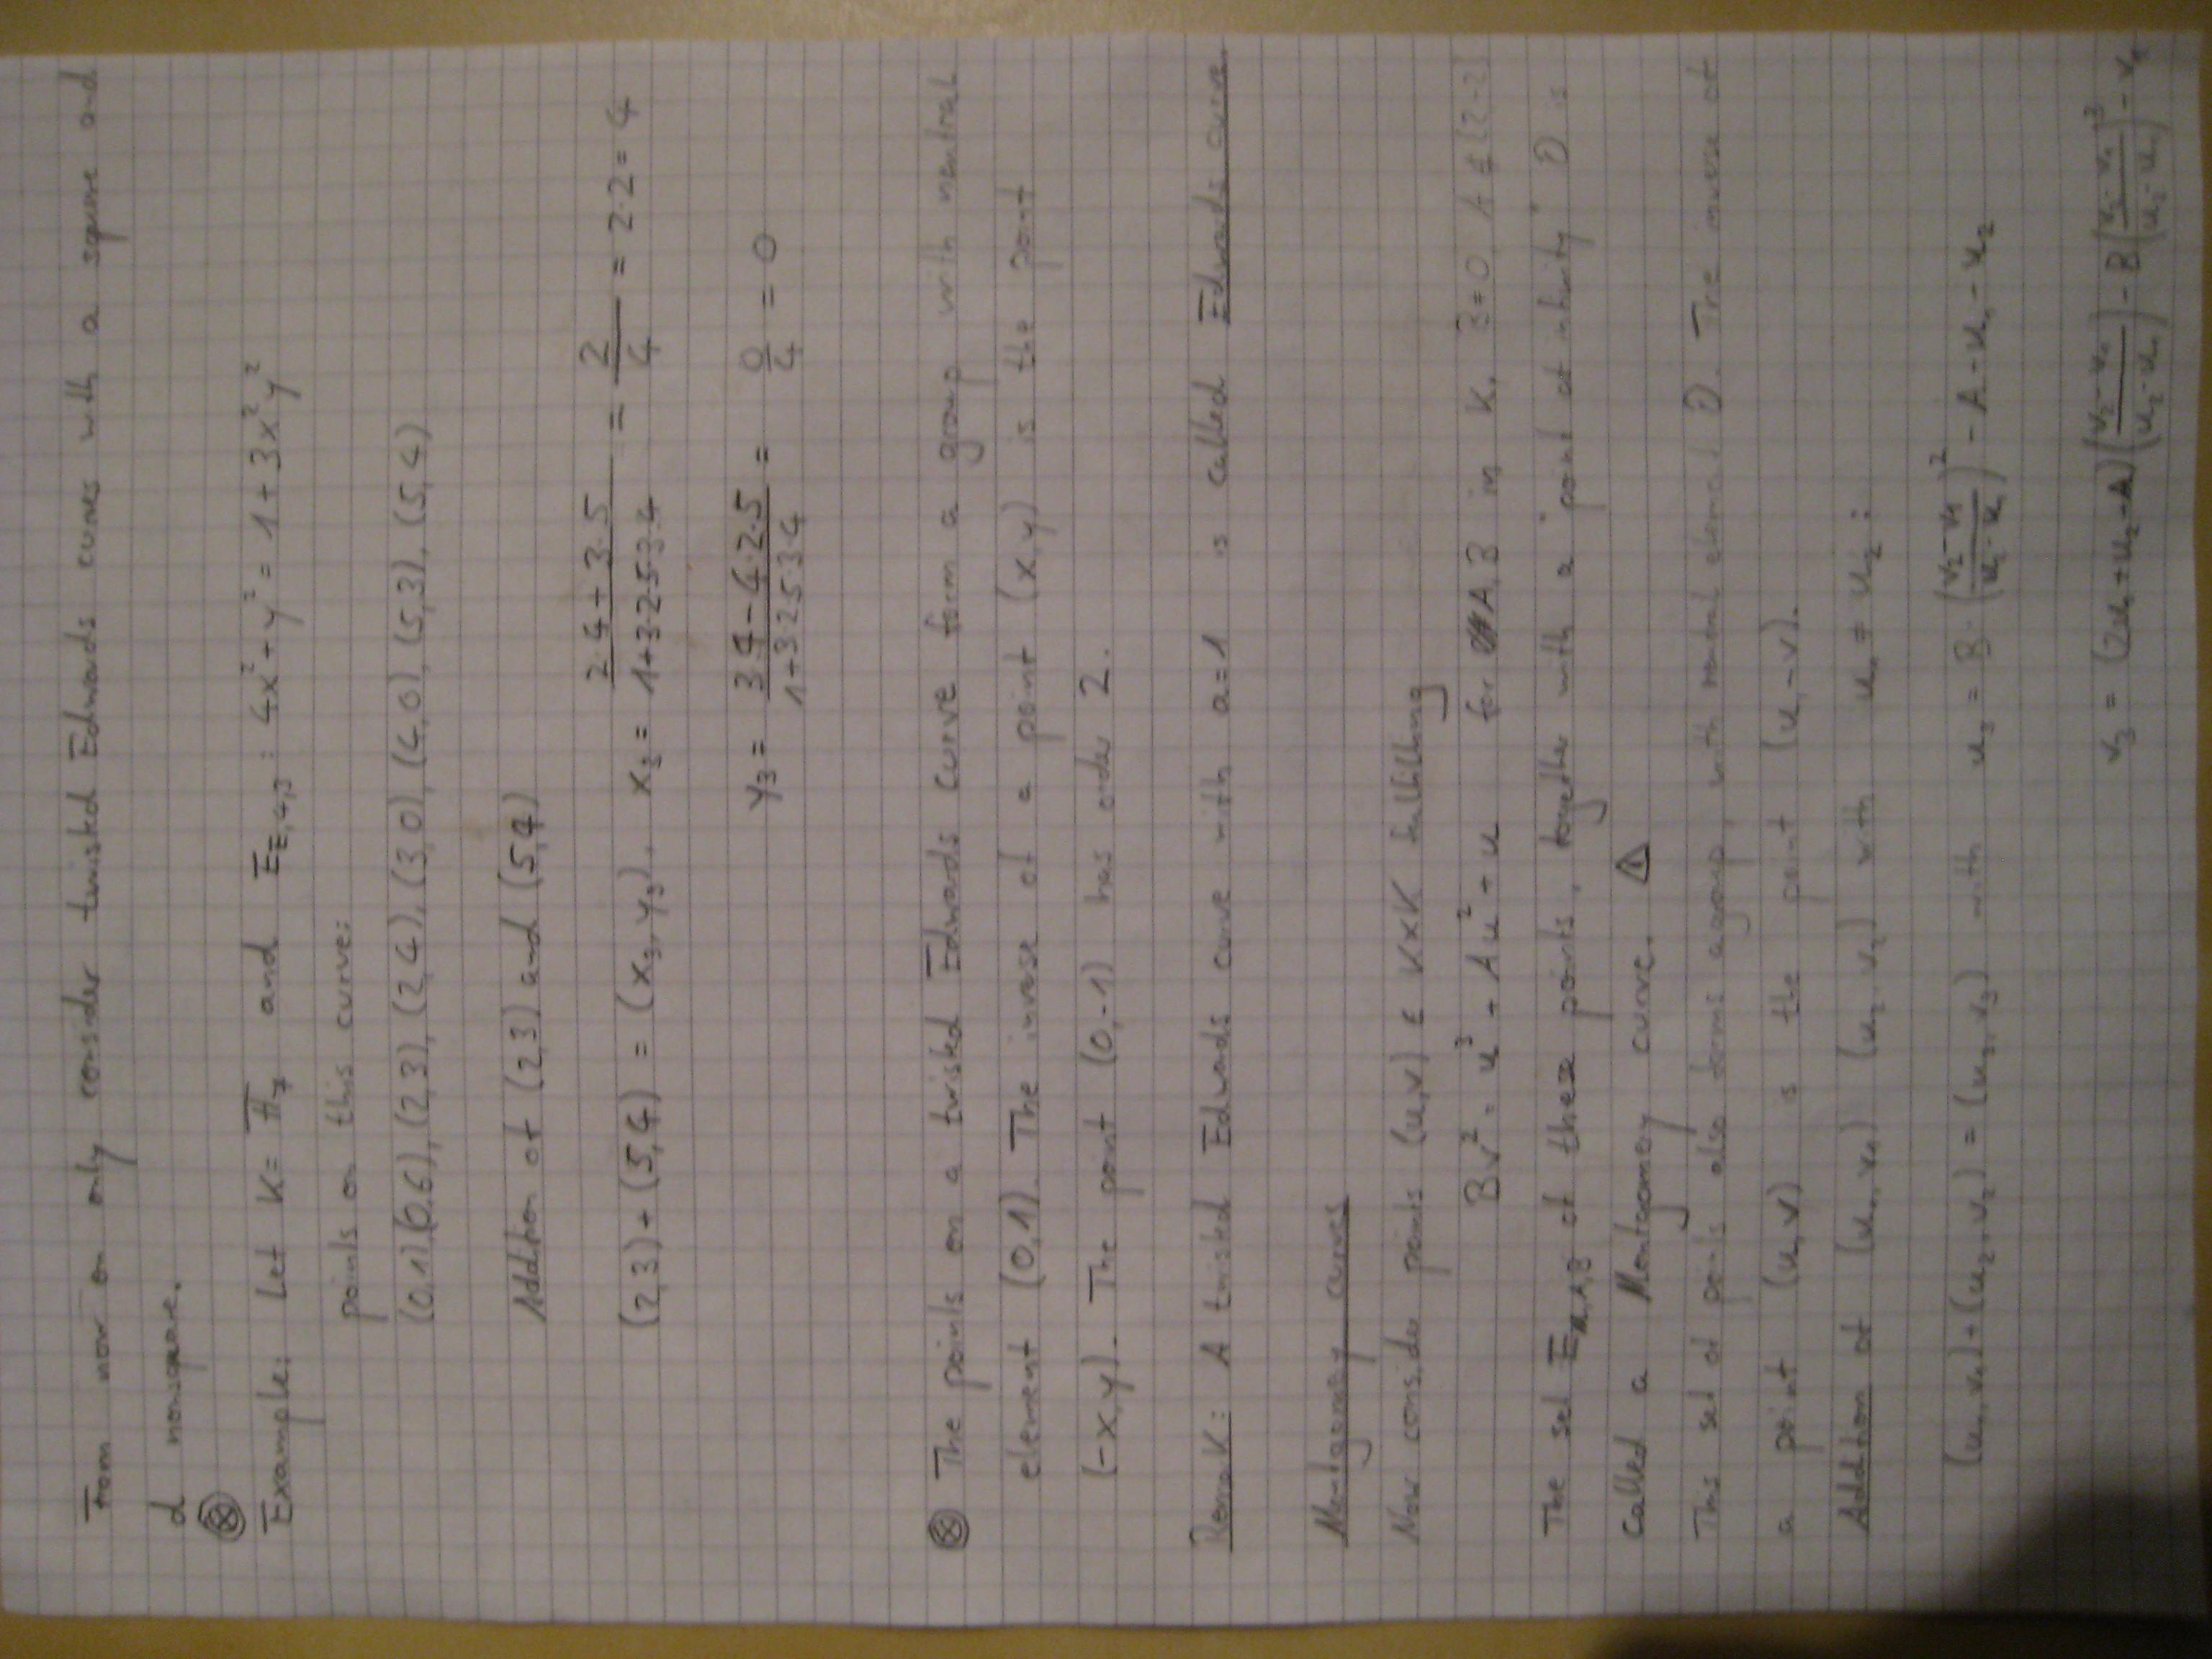 From now on only consider twisted Edwards curves with a square and
d nonsquare.
⊗
Example: Let K = F₇ and E_{E,4,3} : 4x² + y² = 1 + 3x²y²
points on this curve:
(0,1),(0,6),(2,3),(2,4),(3,0),(4,0),(5,3),(5,4)
Addition of (2,3) and (5,4)
(2,3)+(5,4) = (x₃,y₃), x₃ = (2·4+3·5)/(1+3·2·5·3·4) = 2/4 = 2·2 = 4
y₃ = (3·4-4·2·5)/(1+3·2·5·3·4) = 0/4 = 0
⊗ The points on a twisted Edwards curve form a group with neutral
element (0,1). The inverse of a point (x,y) is the point
(-x,y). The point (0,-1) has order 2.
Remark: A twisted Edwards curve with a=1 is called Edwards curve.
Montgomery curves
Now consider points (u,v) ∈ K×K fulfilling
Bv² = u³ + Au² + u for A,B in K, B≠0, A ∉ {2,-2}
The set E_{M,A,B} of these points, together with a "point at infinity" O is
called a Montgomery curve. ⚠
This set of points also forms a group, with neutral element O. The inverse of
a point (u,v) is the point (u,-v).
Addition of (u₁,v₁) (u₂,v₂) with u₁ ≠ u₂ :
(u₁,v₁)+(u₂,v₂) = (u₃,v₃) with u₃ = B·((v₂-v₁)/(u₂-u₁))² - A - u₁ - u₂
v₃ = (2u₁+u₂+A)((v₂-v₁)/(u₂-u₁)) - B((v₂-v₁)/(u₂-u₁))³ - v₁